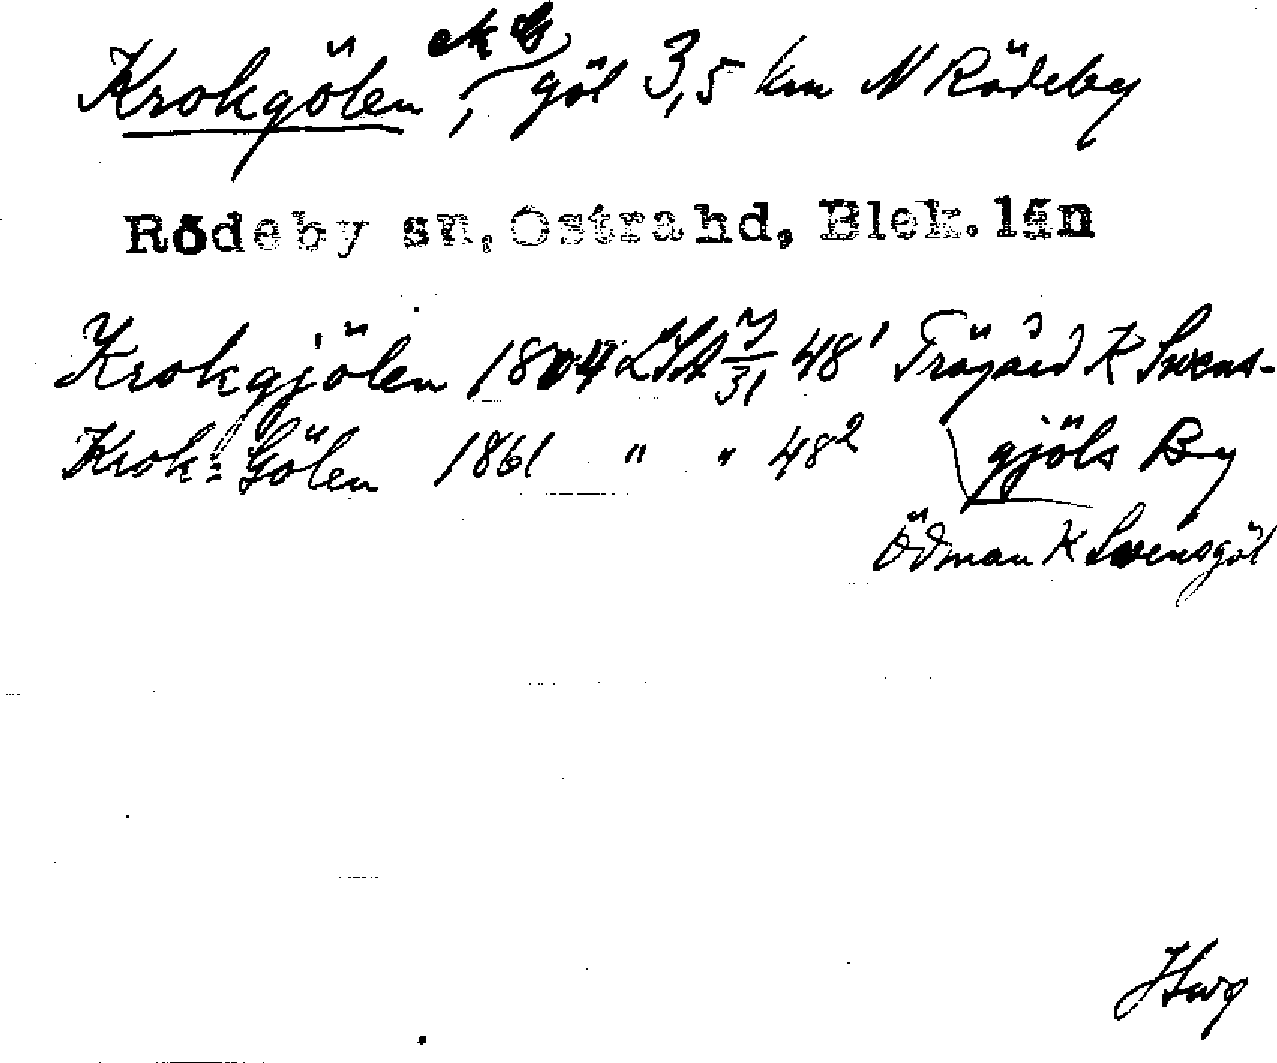 Krokgölen ek G, göl 3,5 km N Rödeby
Rödeby sn, Östra hd, Blek. län
Krokgjölen 1804 LSA 7/31 48¹ Trägård K Swens-
Krok=Gölen 1861 " " 48² gjöls By
Ödman K Svensgöl